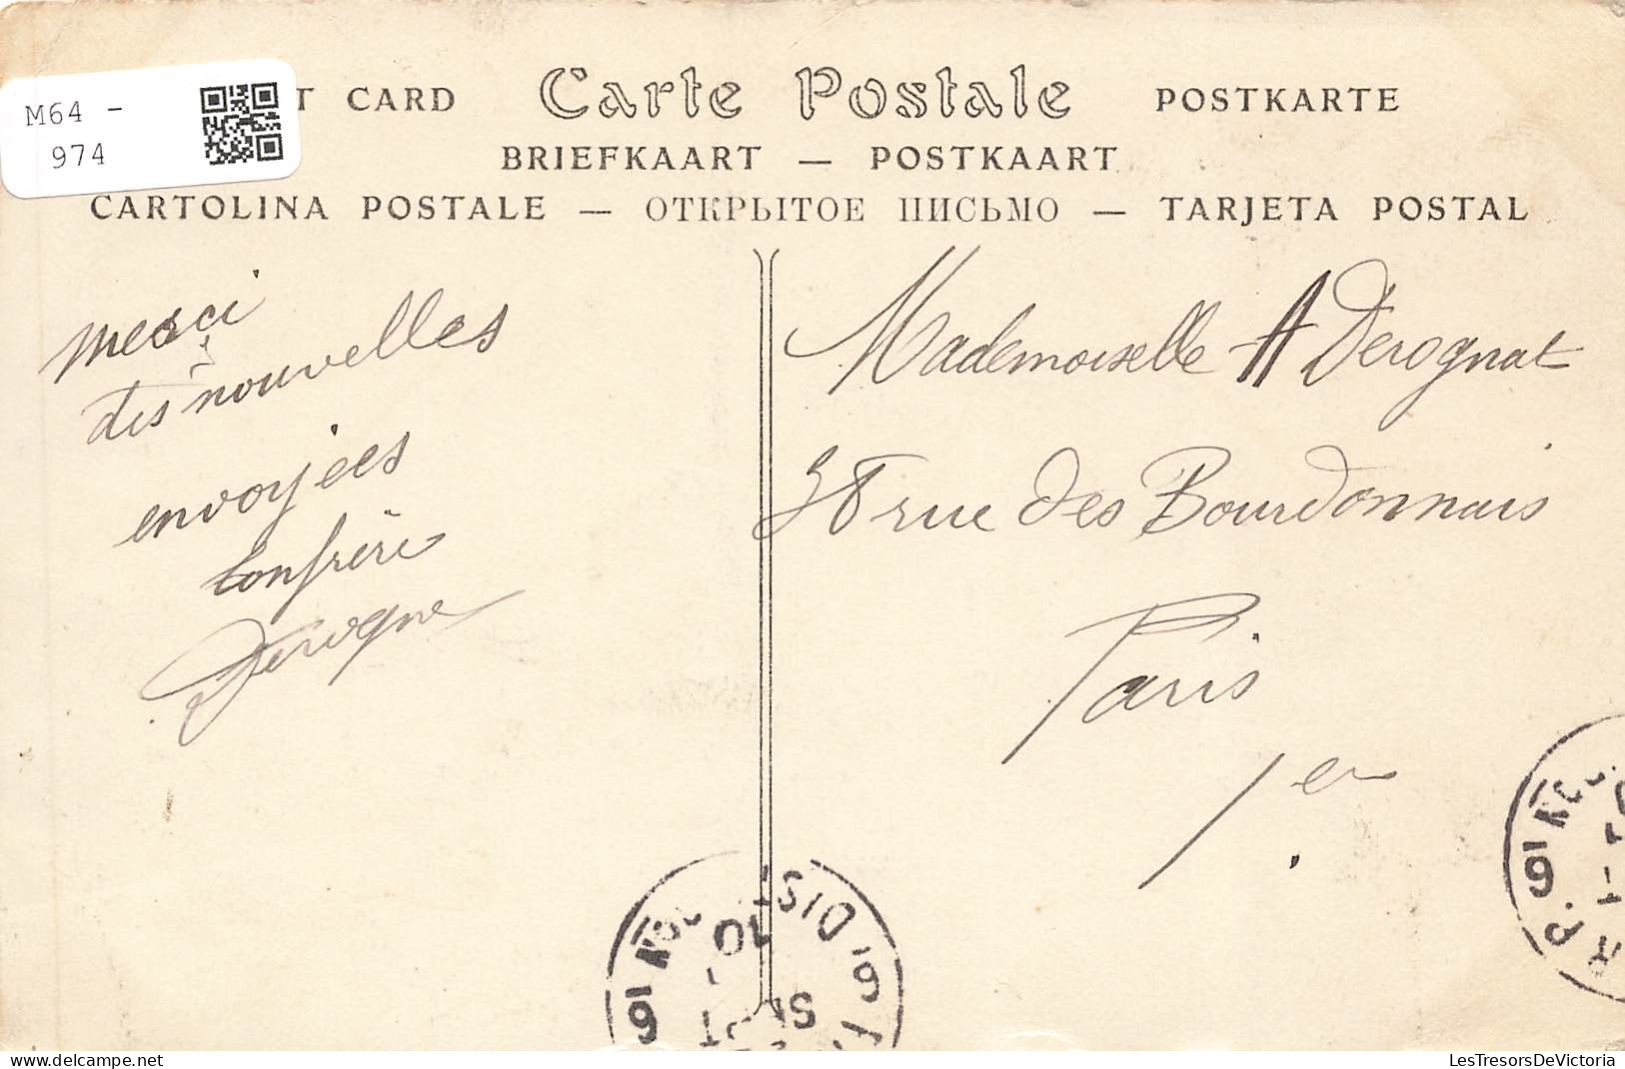 M64 -
974
T CARD Carte Postale POSTKARTE
BRIEFKAART — POSTKAART
CARTOLINA POSTALE — ОТКРЫТОЕ ПИСЬМО — TARJETA POSTAL
merci
des nouvelles
envoyées
ton frère
Mademoiselle A Derognat
38 rue des Bourdonnais
Paris
1er
DIST
10
LesTresorsDeVictoria.com